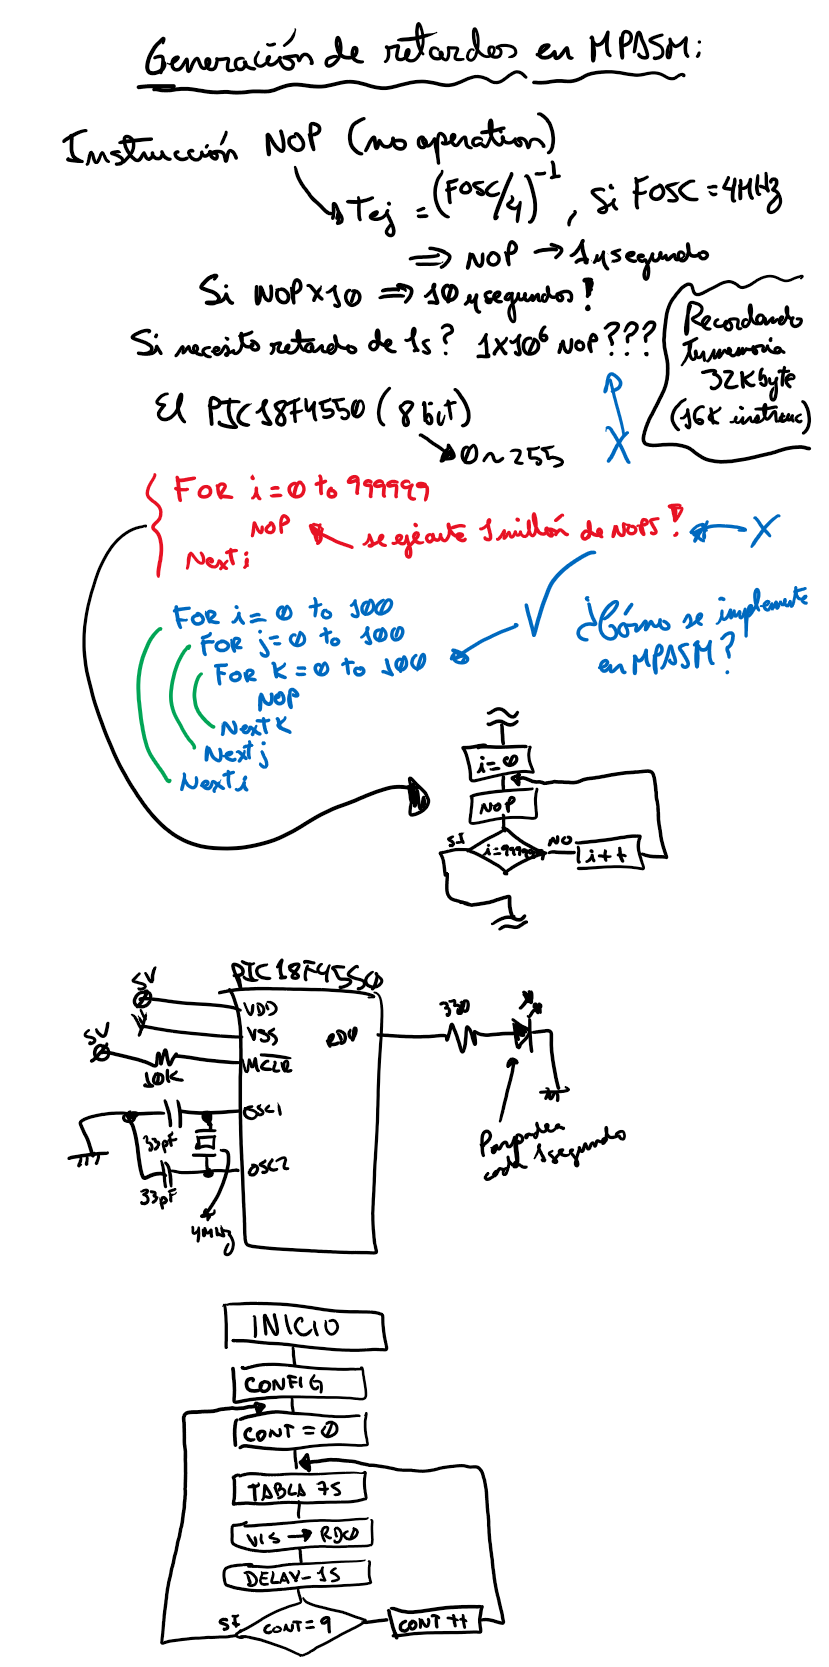 Generación de retardos en MPASM:
Instrucción NOP (no operation)
Tej = (FOSC/4)^-1, Si FOSC = 4MHz
⇒ NOP → 1µsegundo
Si NOP x 10 ⇒ 10 µsegundos!
Si necesito retardo de 1s? 1x10^6 NOP???
Recordando
Tu memoria
32Kbyte
(16K instruc)
El PIC18F4550 (8 bit)
0 ~ 255
X
FOR i = 0 to 999999
NOP
Next i
se ejecute 1 millón de NOPS!
X
FOR i = 0 to 100
FOR j = 0 to 100
FOR K = 0 to 100
NOP
Next K
Next j
Next i
¿Cómo se implemente
en MPASM?
i = 0
NOP
SI
i = 999999
NO
i++
PIC18F4550
5V
VDD
VSS
5V
MCLR
10K
OSC1
33pF
OSC2
33pF
4MHz
RD0
330
Parpadea
cada 1segundo
INICIO
CONFIG
CONT = 0
TABLA 7S
VIS → RD0
DELAY-1S
SI
CONT = 9
CONT ++